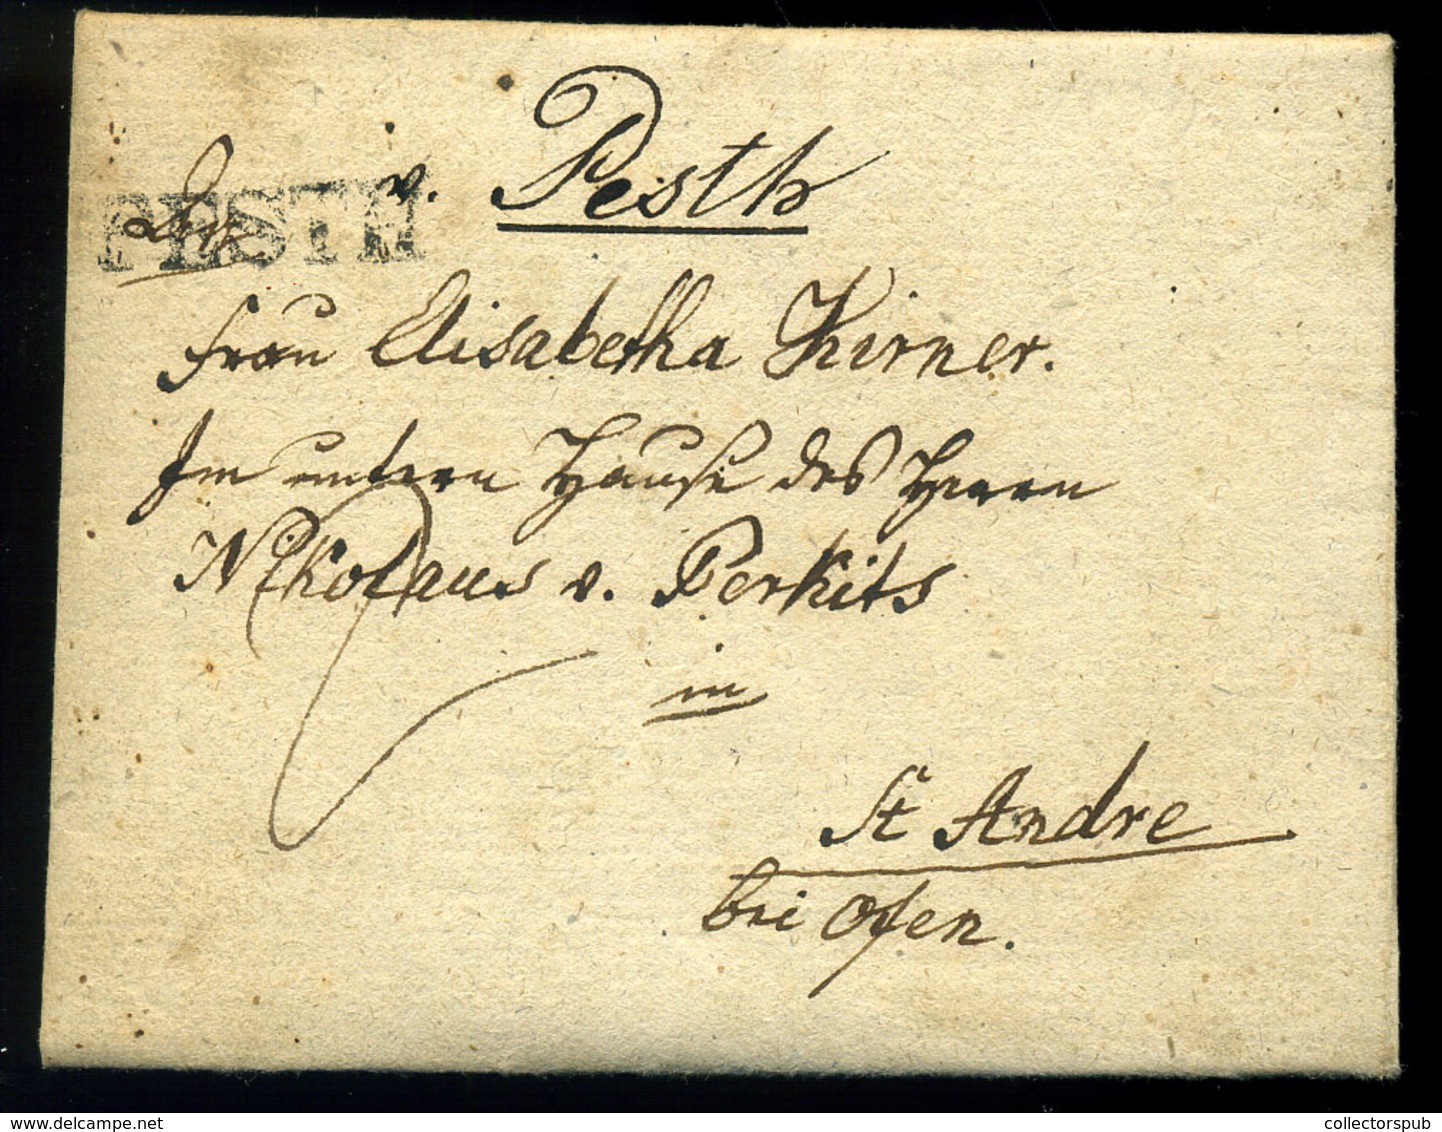 v. Pesth
PESTH
Frau Elisabetha Kirner.
Im untern Hause des Herrn
Nikolaus v. Berkits
in
St Andre
bei Ofen.
collectorspub.com